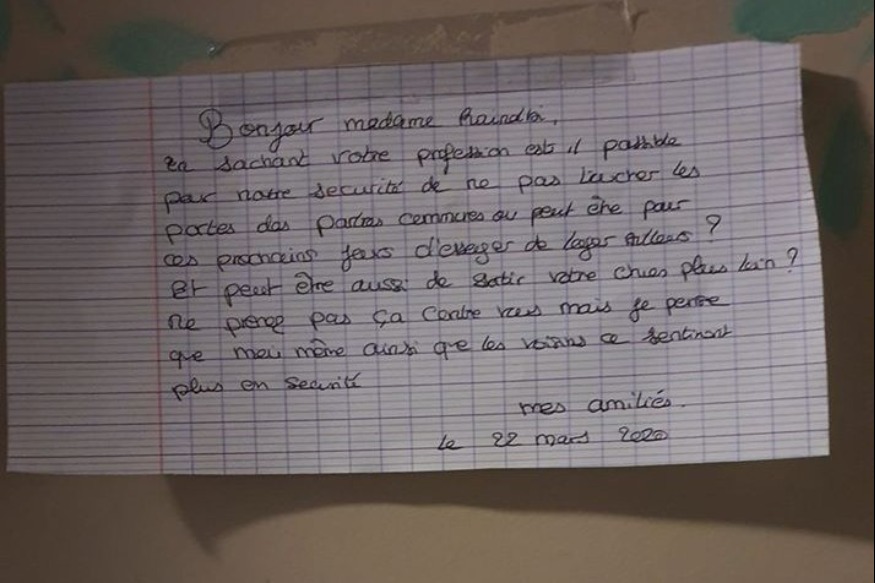 Bonjour madame
en sachant votre profession est il possible
pour notre securité de ne pas toucher les
portes des parties communes ou peut être pour
ces prochains jours d'evisager de loger ailleurs ?
et peut être aussi de sortir votre chien plus loin ?
ne prenez pas ça contre vous mais je pense
que moi même ainsi que les voisins ce sentiront
plus en securité
mes amitiés.
le 22 mars 2020